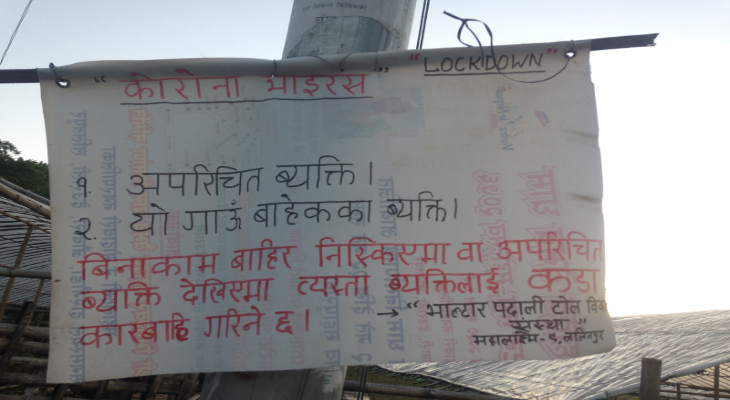 "कोरोना भाइरस" "LOCKDOWN"
१. अपरिचित ब्यक्ति ।
२. यो गाऊँ बाहेकका ब्यक्ति ।
बिनाकाम बाहिर निस्किएमा वा अपरिचित
ब्यक्ति देखिएमा त्यस्ता ब्यक्तिलाई कडा
कारबाहि गरिने छ ।
→ "भाल्टार पदाली टोल
संस्था"